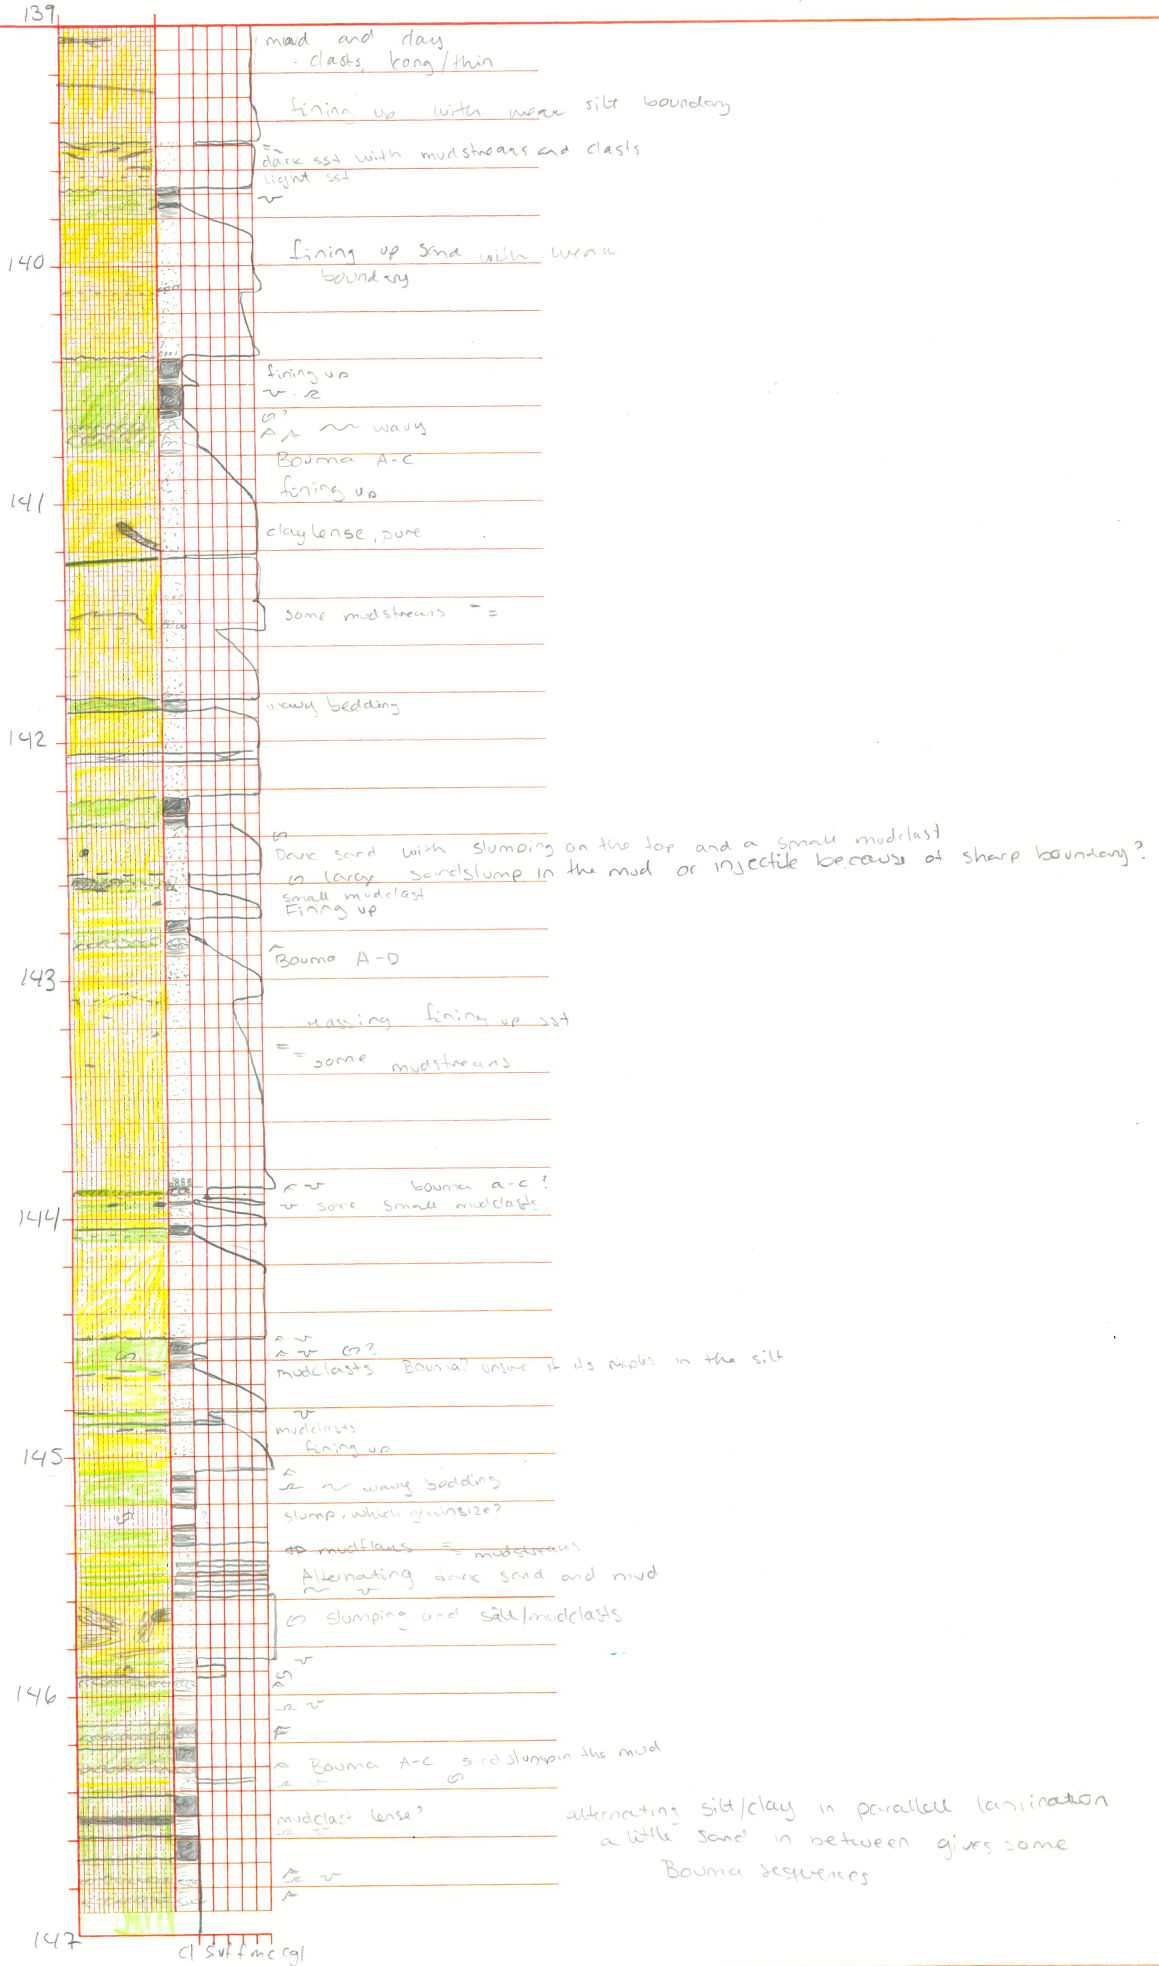 139
mud and clay
clasts, long/thin
fining up with weak silt boundary
dark sst with mudstreaks and clasts
light sst
140
fining up sand with weak
boundary
fining up
wavy
Bouma A-C
141
fining up
clay lense, pure
some mudstreaks
wavy bedding
142
Dark sand with slumping on the top and a small mudclast
large sandslump in the mud or injectite because of sharp boundary?
small mudclast
Fining up
143
Bouma A-D
fining up sst
some mudstreaks
bouma a-c?
144
some small mudclasts
mudclasts Bouma? unsure if its ripples in the silt
mudclasts
145
fining up
wavy bedding
? slump, which grainsize?
mudflakes mudstreaks
Alternating dark sand and mud
slumping and mudclasts
146
F
Bouma A-C sandslump in the mud
mudclast lense?
alternating silt/clay in parallell lamination
a little sand in between gives some
Bouma sequences
147
cl si vf f m c cgl